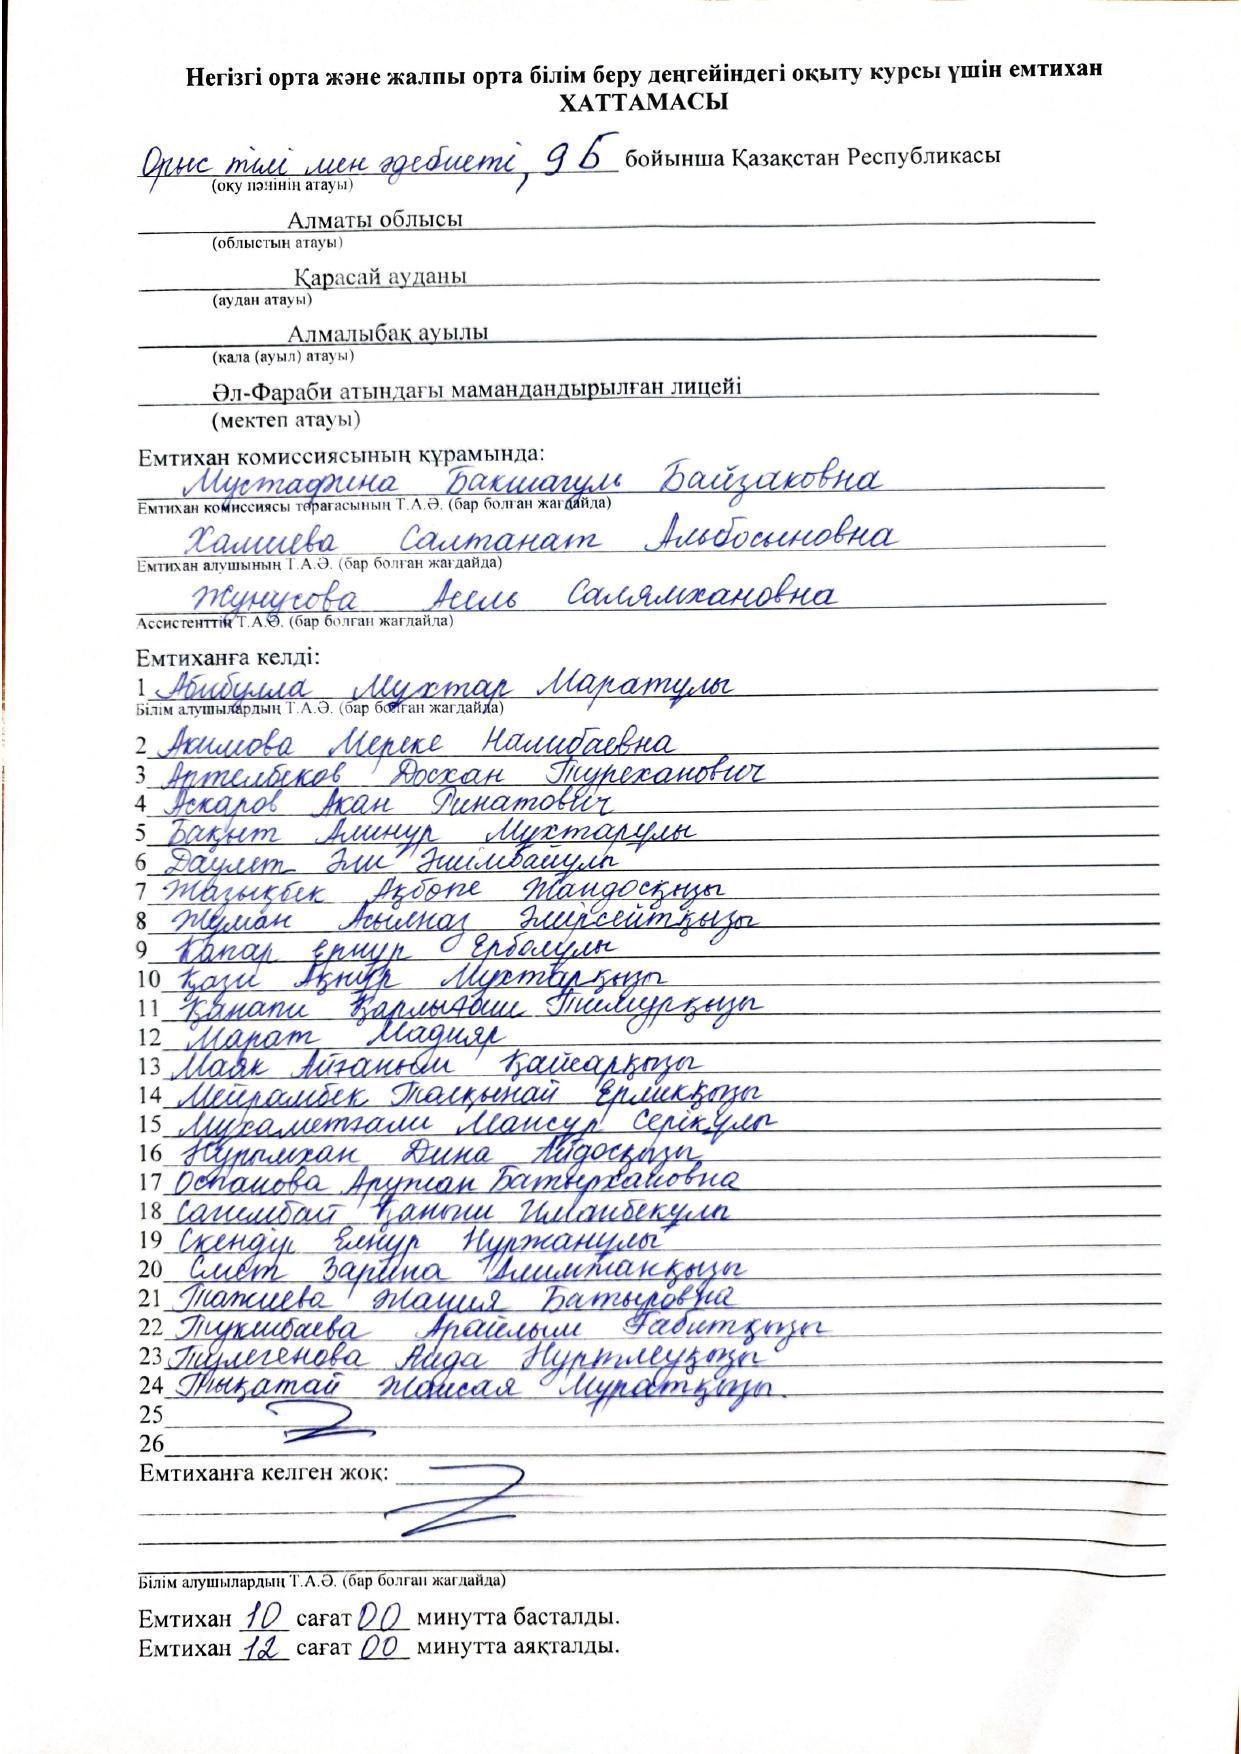 Негізгі орта және жалпы орта білім беру деңгейіндегі оқыту курсы үшін емтихан
ХАТТАМАСЫ
Орыс тілі мен әдебиеті, 9Б бойынша Қазақстан Республикасы
(оқу пәнінің атауы)
Алматы облысы
(облыстың атауы)
Қарасай ауданы
(аудан атауы)
Алмалыбақ ауылы
(қала (ауыл) атауы)
Әл-Фараби атындағы мамандандырылған лицейі
(мектеп атауы)
Емтихан комиссиясының құрамында:
Мустафина Бакшагуль Байзаковна
Емтихан комиссиясы төрағасының Т.А.Ә. (бар болған жағдайда)
Халиева Салтанат Альбосыновна
Емтихан алушының Т.А.Ә. (бар болған жағдайда)
Жунусова Асель Салямхановна
Ассистенттің Т.А.Ә. (бар болған жағдайда)
Емтиханға келді:
1 Абибулла Мухтар Маратулы
Білім алушылардың Т.А.Ә. (бар болған жағдайда)
2 Акимова Мереке Налибаевна
3 Артелбеков Досхан Туреханович
4 Аскаров Акан Ринатович
5 Бақыт Алинур Мухтарулы
6 Даулет Әли Әшімбайулы
7 Жазықбек Ақбөпе Жандосқызы
8 Жуман Асылназ Әмірсейтқызы
9 Капар Ернур Ерболулы
10 Қази Ақнұр Мухтарқызы
11 Қанапи Қарлығаш Тимурқызы
12 Марат Мадияр
13 Маяк Айғаным Қайсарқызы
14 Мейрамбек Талқынай Ерликқызы
15 Мухаметғали Мансур Серікұлы
16 Нурымхан Дина Айдосқызы
17 Оспанова Аружан Батырхановна
18 Сагимбай Қаныш Иманбекулы
19 Скендір Елнур Нуржанулы
20 Смет Зарина Алимжанқызы
21 Тажиева Жания Батыровна
22 Тукишбаева Арайлым Ғабитқызы
23 Тулегенова Аида
24 Тықатай Жансая Муратқызы.
25
26
Емтиханға келген жоқ:
Білім алушылардың Т.А.Ә. (бар болған жағдайда)
Емтихан 10 сағат 00 минутта басталды.
Емтихан 12 сағат 00 минутта аяқталды.